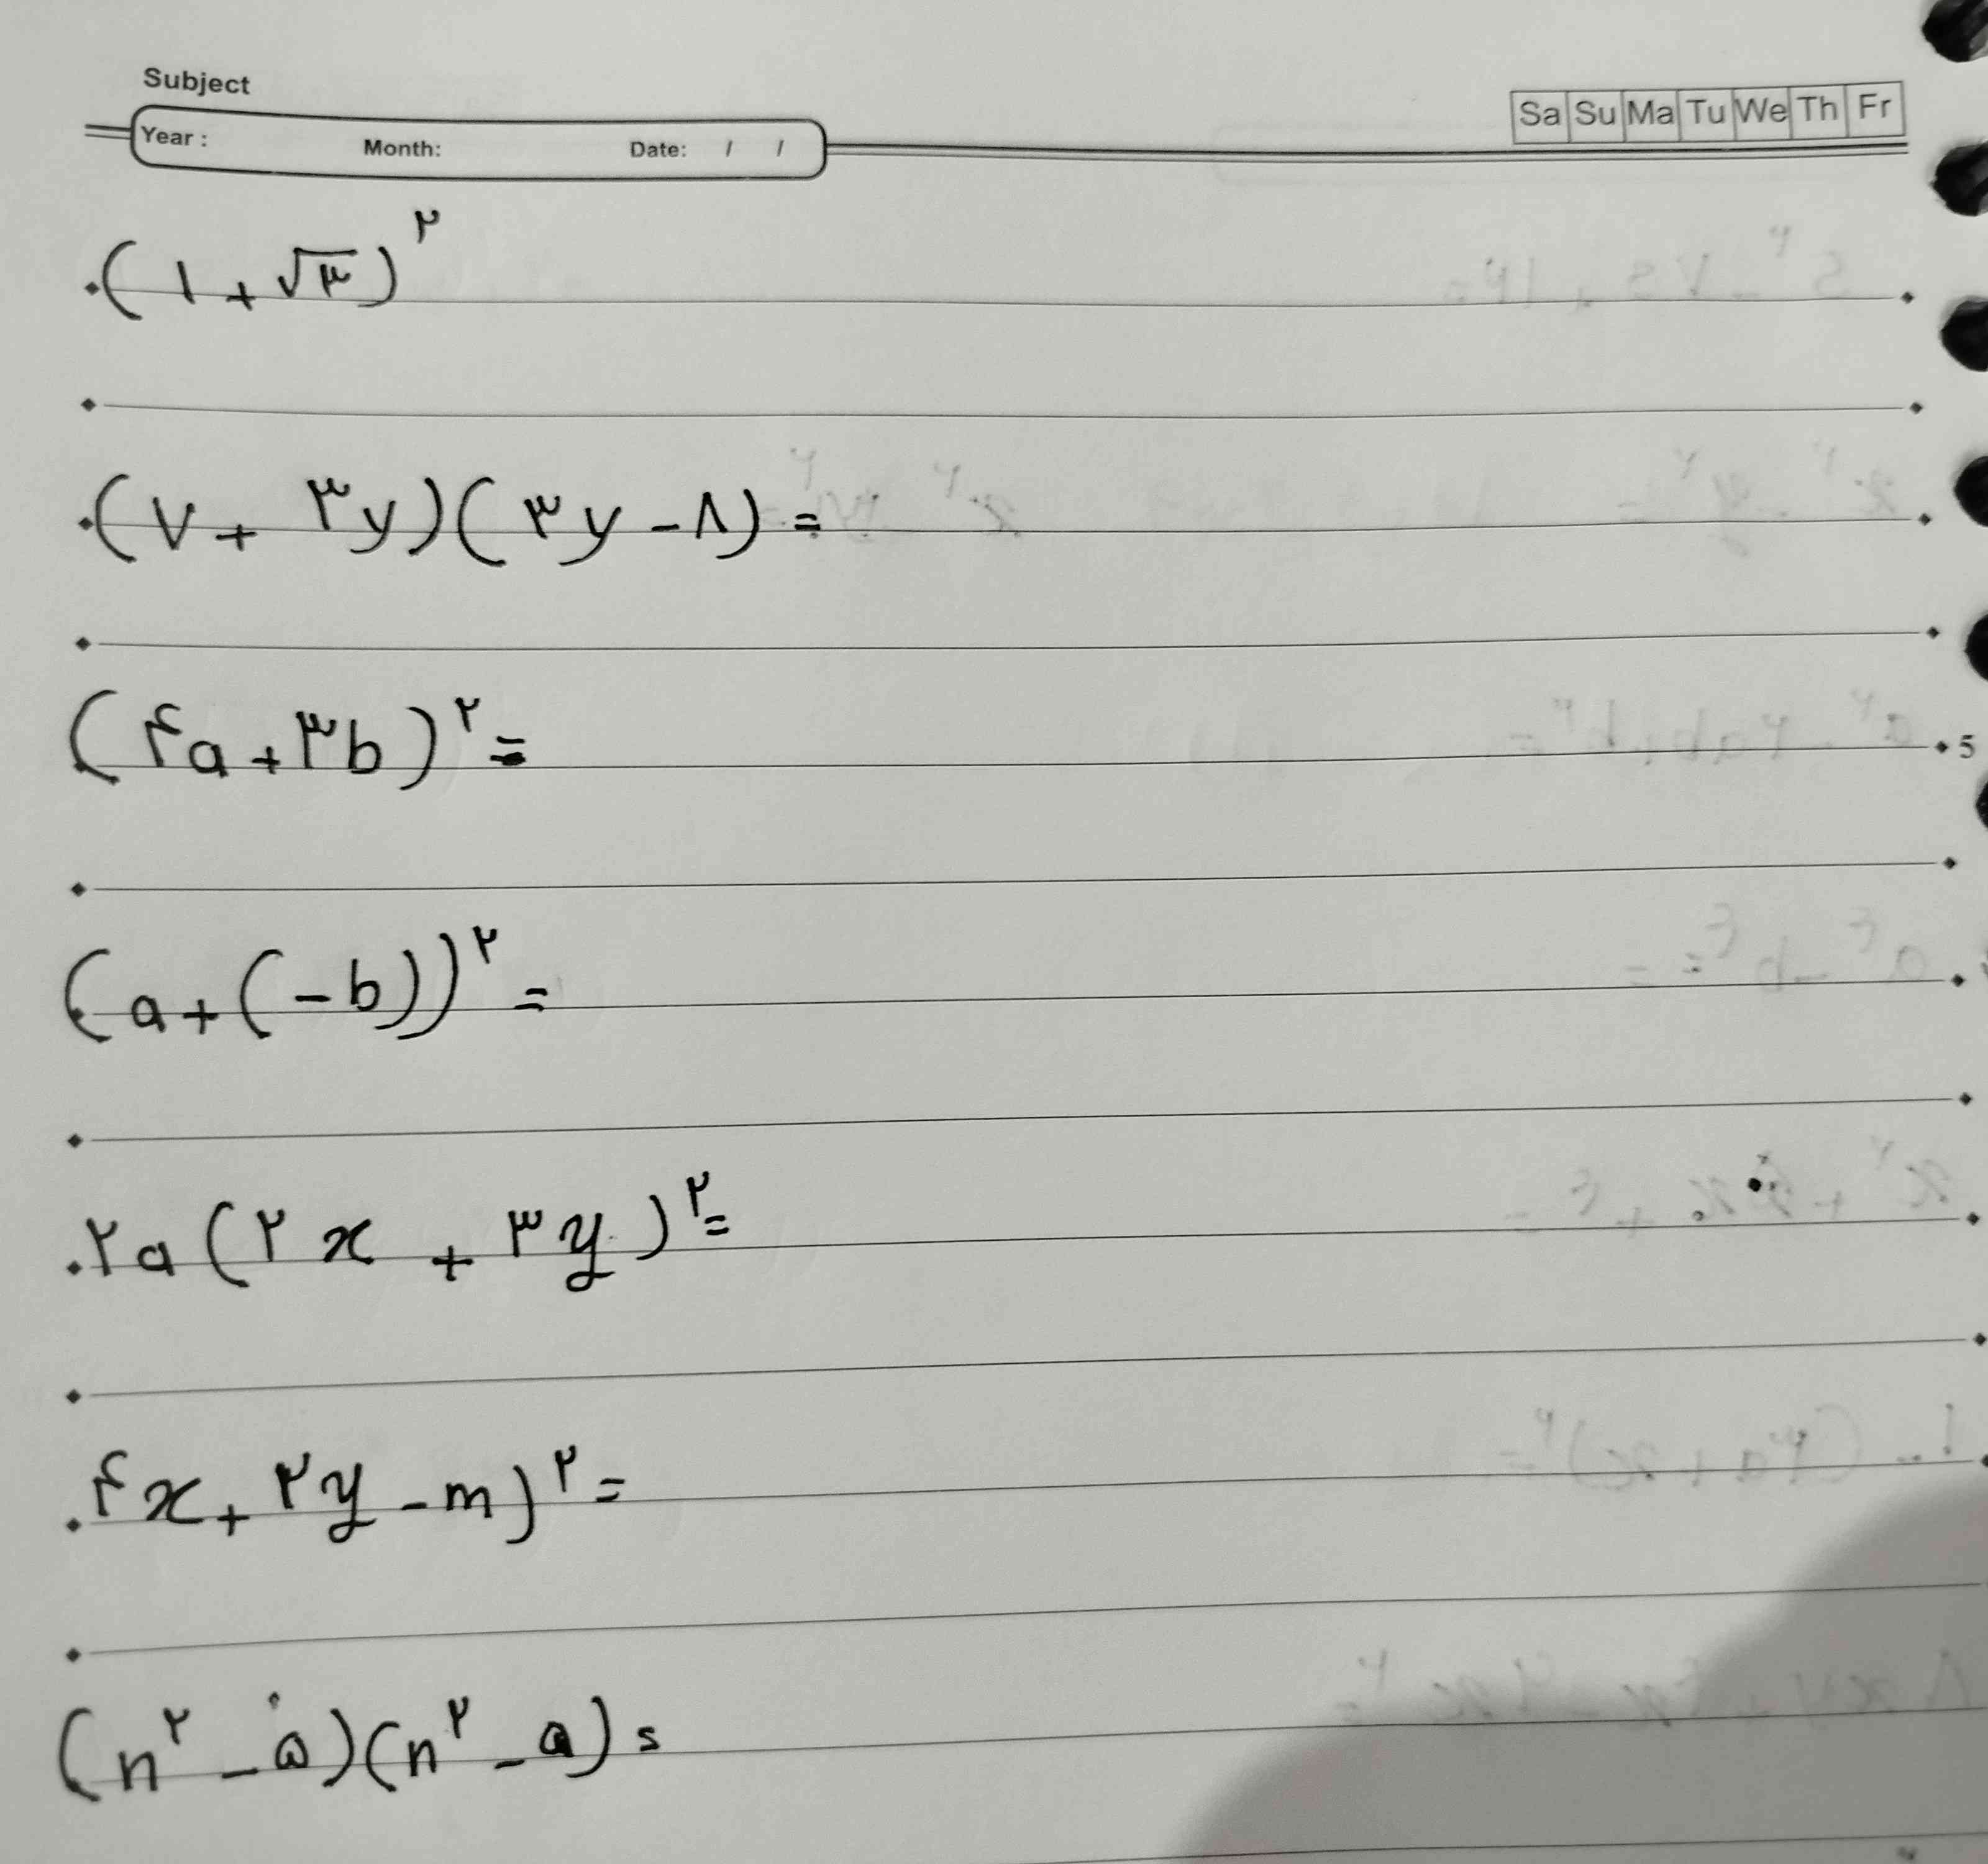 Subject
Year : Month: Date: / /
Sa Su Ma Tu We Th Fr
(۱ + √۳)^۲
(۷ + ۳y)(۳y - ۸) =
(۴a + ۳b)^۲ =
5
(a + (-b))^۲ =
۲a(۲x + ۳y)^۲ =
۴x + ۲y - m)^۲ =
(n^۲ - ۵)(n^۲ - ۵) =